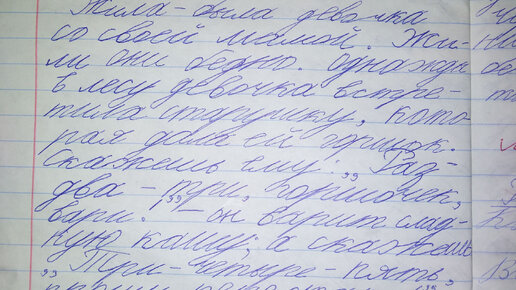 Жила-была девочка
со своей мамой. Жи-
ли они бедно. Однажды
в лесу девочка встре-
тила старушку, кото
рая дала ей горшок.
Скажешь ему: „Раз-
два-три, горшочек,
вари!" - он варит слад-
кую кашу; а скажешь
„Три-четыре-пять,